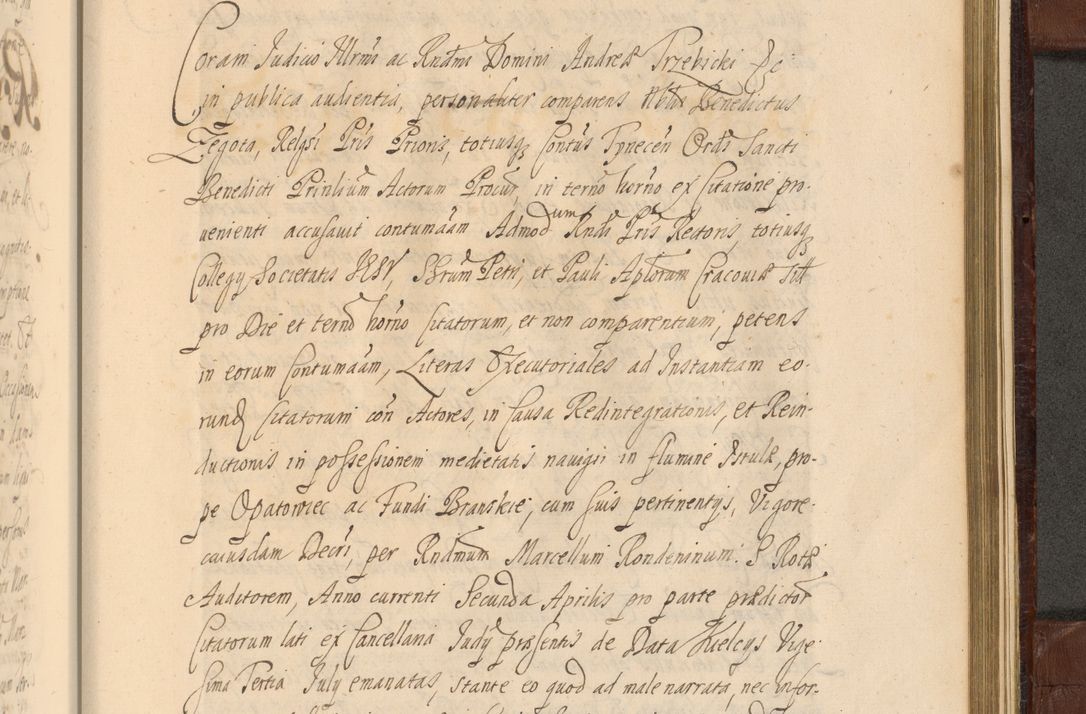 Coram Judicio Illrmi ac Rndmi Domini Andreæ Trzebicki &c
in publica audientia, personaliter comparens Nblis Benedictus
Zegota, Relgsi Pris Prioris, totiusq Contus Tynecen Ordi Sancti
Benedicti Prinlium Actorum Procur, in terno horno ex Citatione pro-
uenienti accusauit contumaam Admodum Rndi Pris Rectoris, totiusq
Collegy Societatis IESV, SSrum Petri, et Pauli Aplorum Cracouiæ Titt
pro Die et terno horno citatorum, et non comparentium, petens
in eorum Contumaam, Literas Executoriales ad Instantiam eo-
rund Citatorum con Actores, in Causa Redintegrationis, et Rein-
ductionis in possessionem medietatis nauigii in flumine Istulæ, pro-
pe Opatowiec ac Fundi Branskie, cum suis pertinentys, Vigore
cuiusdam Decri, per Rndmum Marcellum Rondeninum S Rotæ
Auditorem, Anno currenti Secunda Aprilis pro parte prædictor
Citatorum lati ex Cancellaria Judy præsentis de Data Kielcys Vige-
sima Tertia July emanatas, stante eo quod ad male narrata, nec infor-